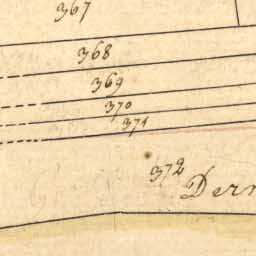 367
368
369
370
371
372
Dern